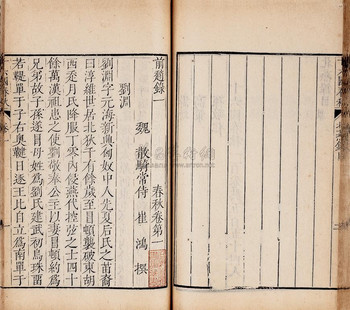 前趙録一
春秋卷第一
魏 散騎常侍 崔鴻 撰
劉淵
劉淵字元海新興匈奴中人先夏后氏之苗裔
曰淳維世居北狄千有餘歲至冒頓襲破東胡
西走月氏降服丁零內侵燕代控弦之士四十
餘萬漢祖患之使劉敬奉公主以妻冒頓約爲
兄弟故子孫遂冒母姓爲劉氏建武初烏珠留
若鞮單于子右奧鞬日逐王比自立爲南單于